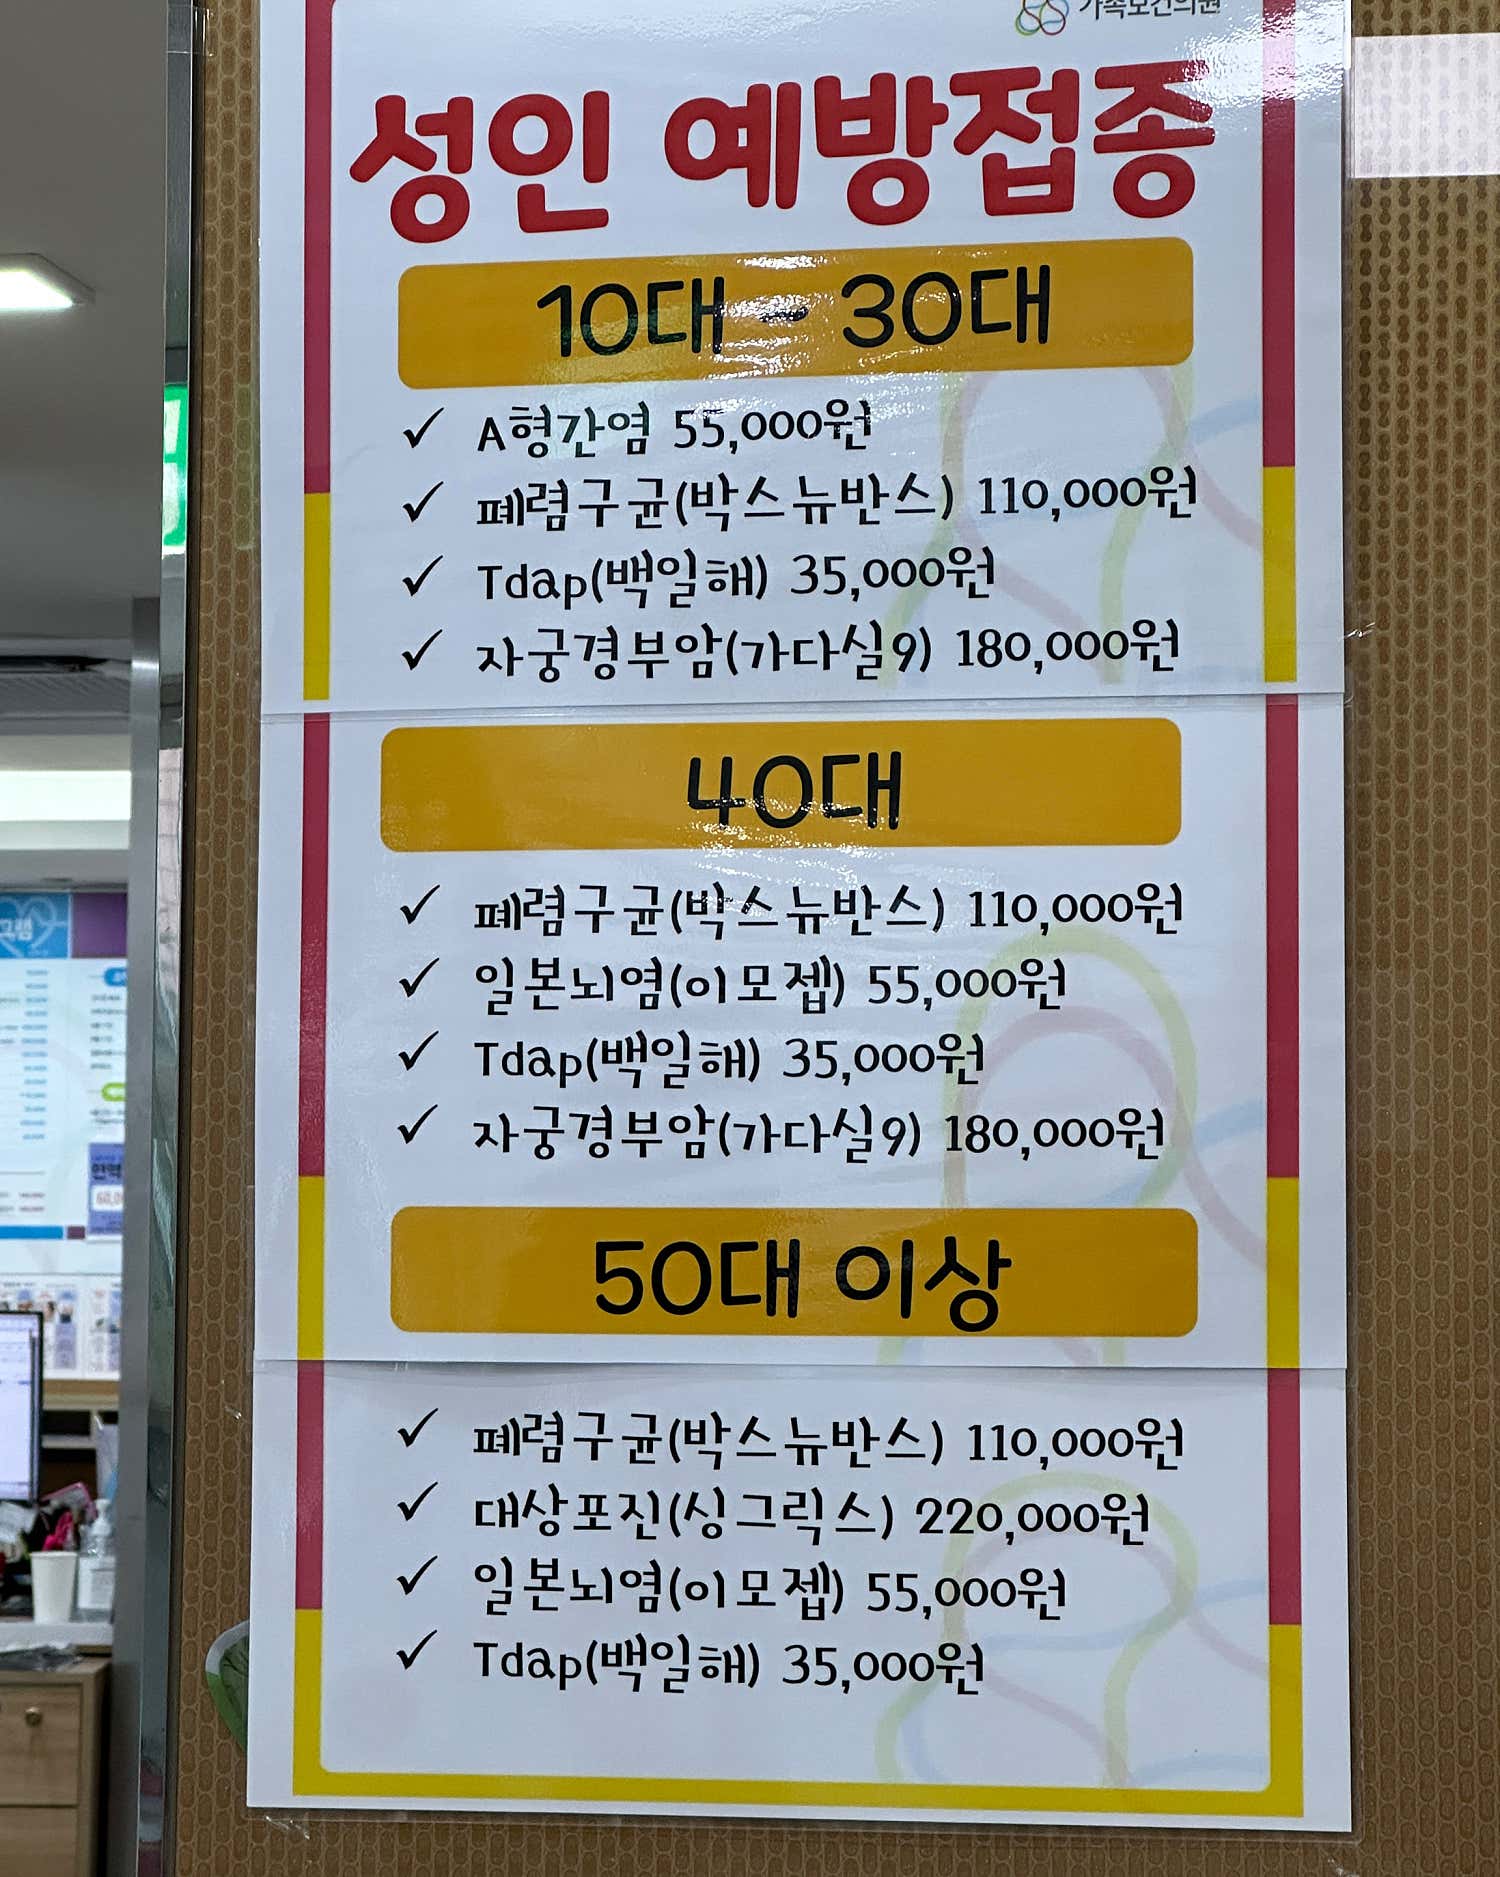 가족보건의원
성인 예방접종
10대 - 30대
✓ A형간염 55,000원
✓ 폐렴구균(박스뉴반스) 110,000원
✓ Tdap(백일해) 35,000원
✓ 자궁경부암(가다실9) 180,000원
40대
✓ 폐렴구균(박스뉴반스) 110,000원
✓ 일본뇌염(이모젭) 55,000원
✓ Tdap(백일해) 35,000원
✓ 자궁경부암(가다실9) 180,000원
50대 이상
✓ 폐렴구균(박스뉴반스) 110,000원
✓ 대상포진(싱그릭스) 220,000원
✓ 일본뇌염(이모젭) 55,000원
✓ Tdap(백일해) 35,000원